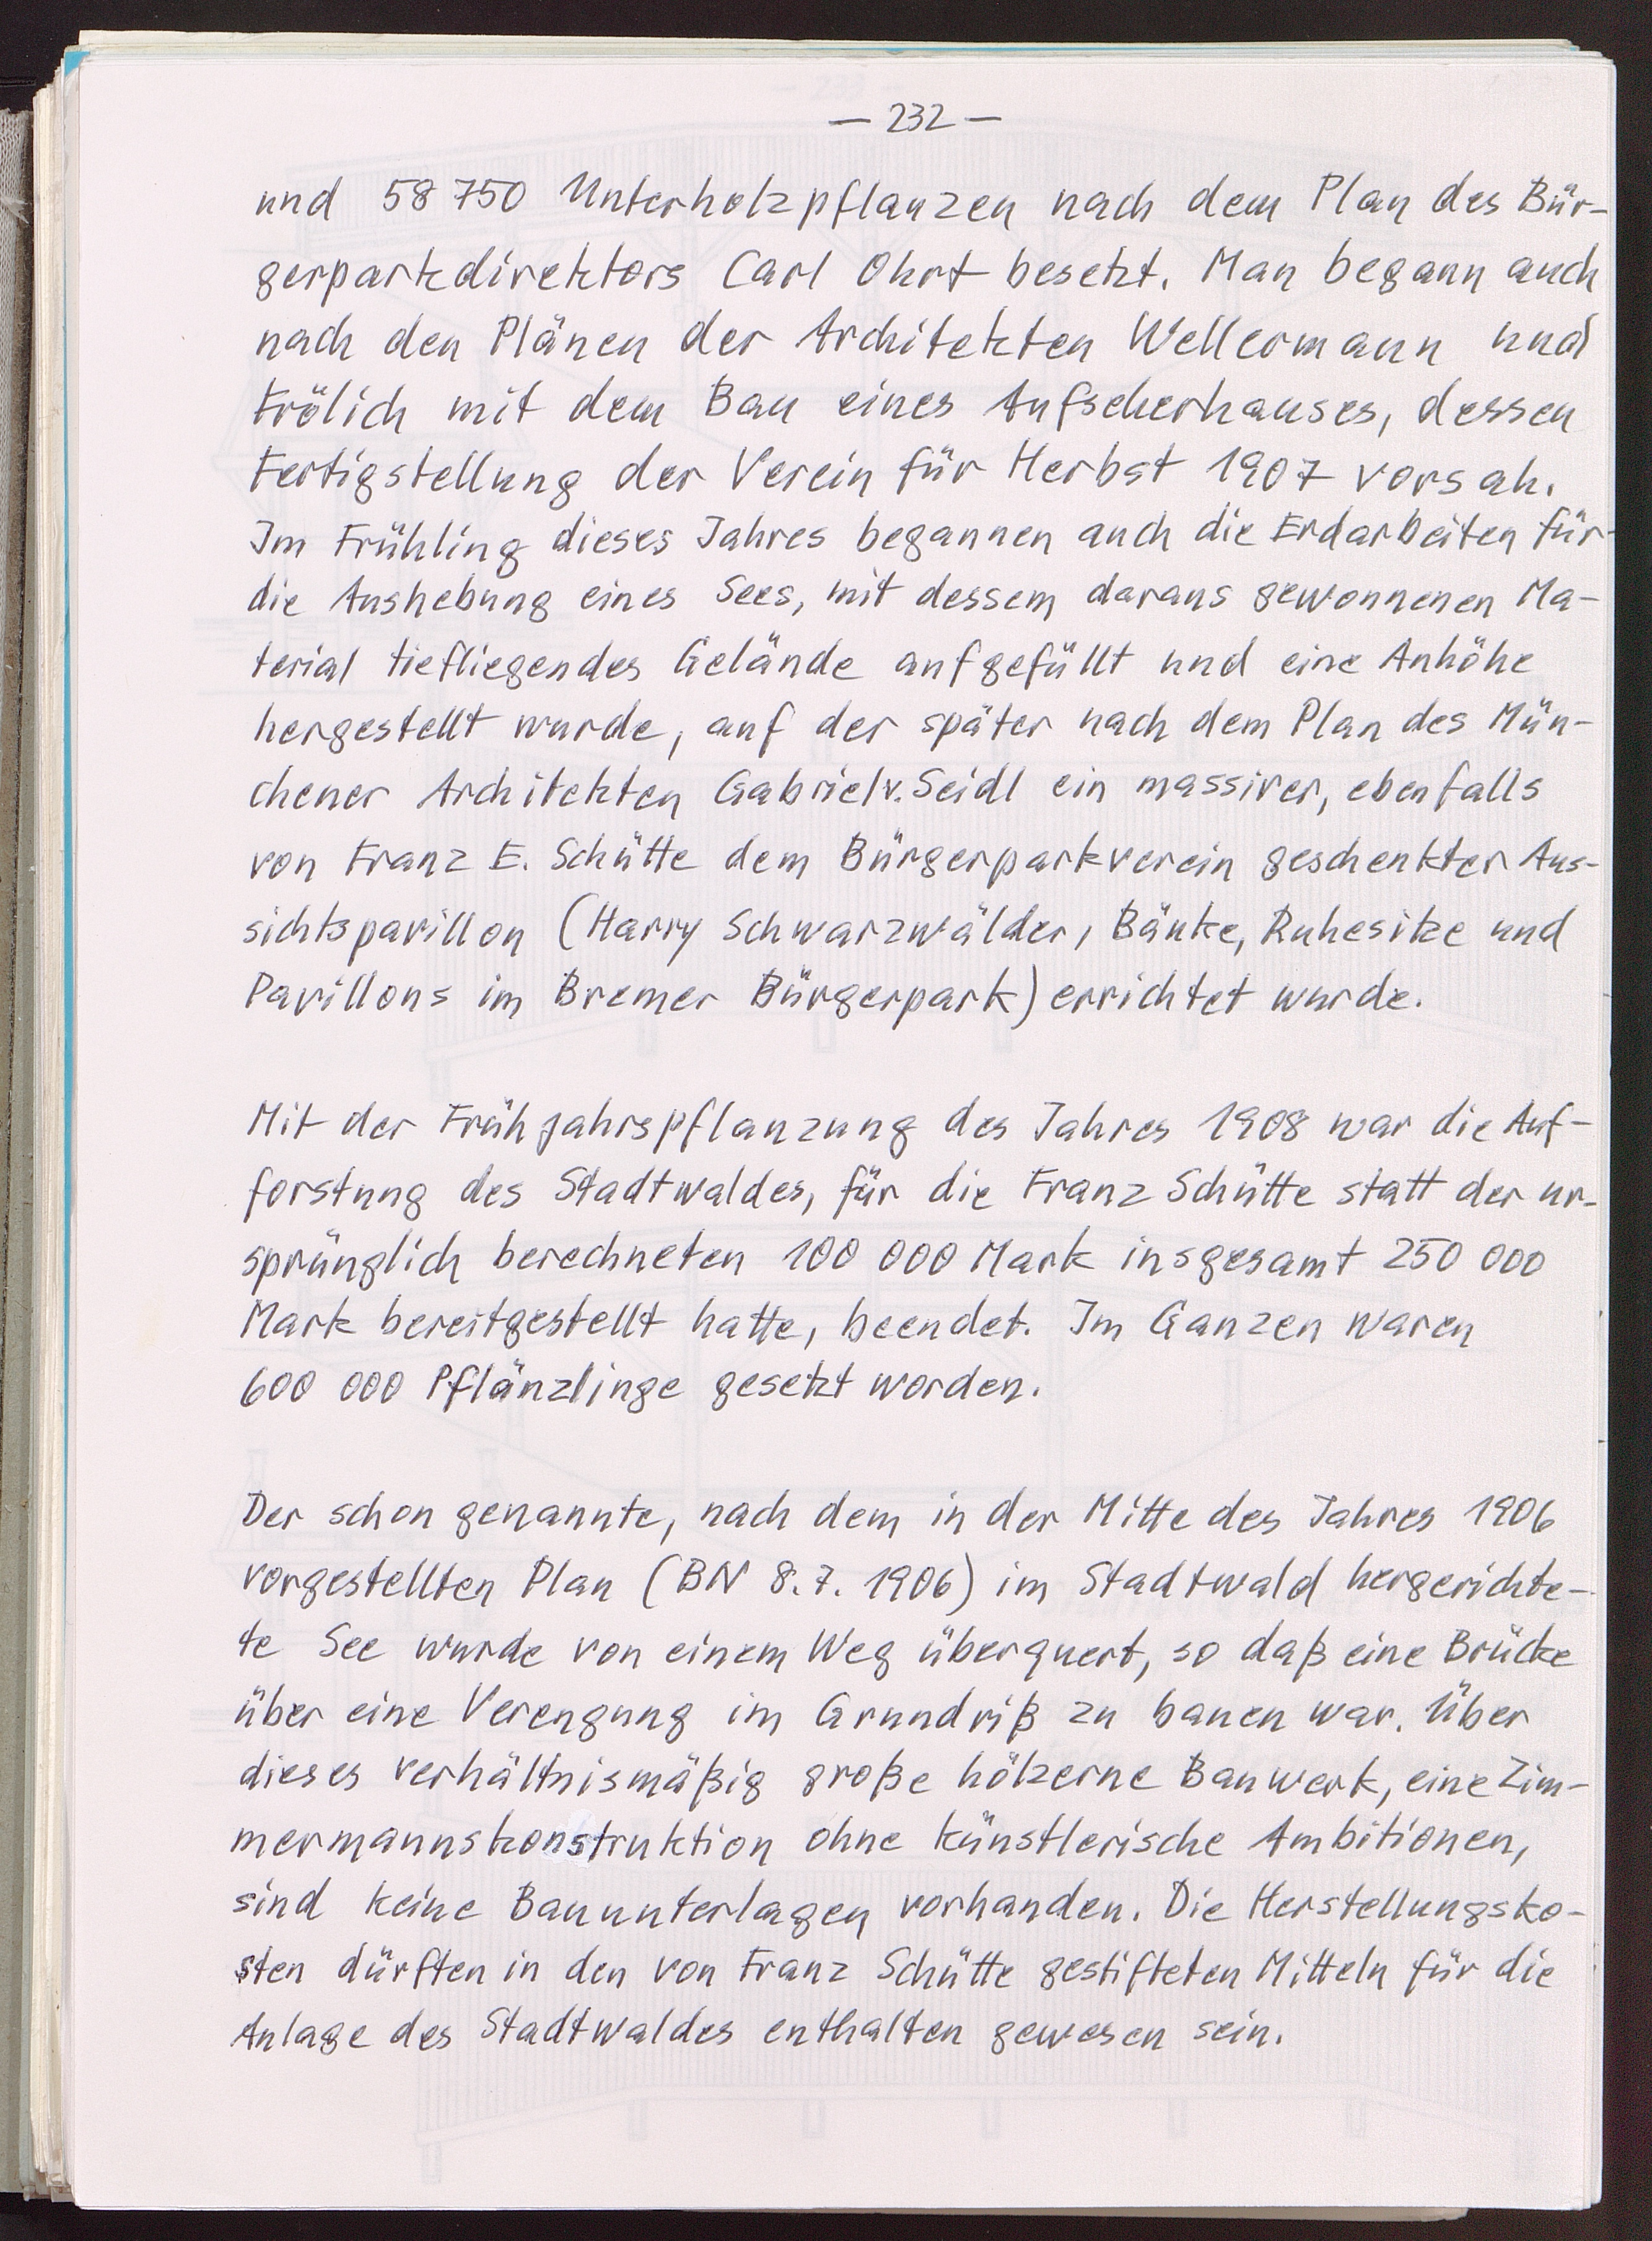 — 232 —
und 58 750 Unterholzpflanzen nach dem Plan des Bür-
gerparkdirektors Carl Ohrt besetzt. Man begann auch
nach den Plänen der Architekten Wellermann und
Frölich mit dem Bau eines Aufseherhauses, dessen
Fertigstellung der Verein für Herbst 1907 vorsah.
Im Frühling dieses Jahres begannen auch die Erdarbeiten für
die Aushebung eines Sees, mit dessem daraus gewonnenen Ma-
terial tiefliegendes Gelände aufgefüllt und eine Anhöhe
hergestellt wurde, auf der später nach dem Plan des Mün-
chener Architekten Gabriel v. Seidl ein massiver, ebenfalls
von Franz E. Schütte dem Bürgerparkverein geschenkter Aus-
sichtspavillon (Harry Schwarzwälder, Bänke, Ruhesitze und
Pavillons im Bremer Bürgerpark) errichtet wurde.
Mit der Frühjahrspflanzung des Jahres 1908 war die Auf-
forstung des Stadtwaldes, für die Franz Schütte statt der ur-
sprünglich berechneten 100 000 Mark insgesamt 250 000
Mark bereitgestellt hatte, beendet. Im Ganzen waren
600 000 Pflänzlinge gesetzt worden.
Der schon genannte, nach dem in der Mitte des Jahres 1906
vorgestellten Plan (BN 8. 7. 1906) im Stadtwald hergerichte-
te See wurde von einem Weg überquert, so daß eine Brücke
über eine Verengung im Grundriß zu bauen war. Über
dieses verhältnismäßig große hölzerne Bauwerk, eine Zim-
mermannskonstruktion ohne künstlerische Ambitionen,
sind keine Bauunterlagen vorhanden. Die Herstellungsko-
sten dürften in den von Franz Schütte gestifteten Mitteln für die
Anlage des Stadtwaldes enthalten gewesen sein.